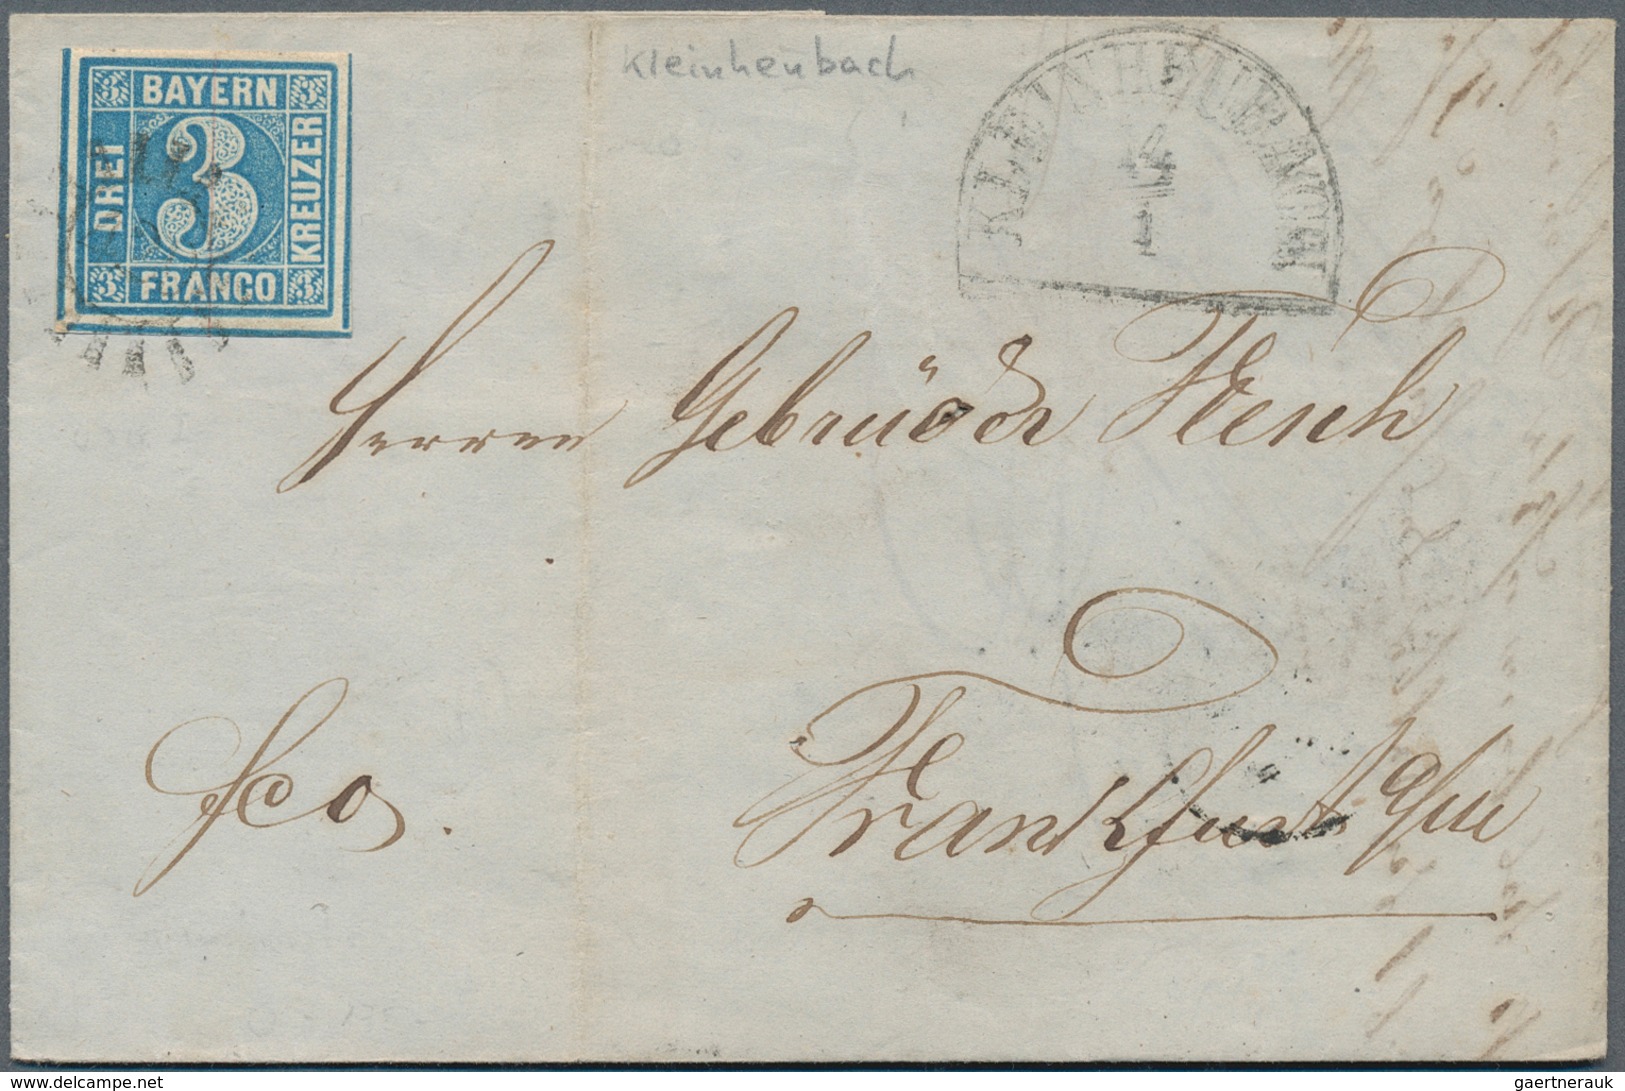 Kleinheubach
3 BAYERN 3
DREI 3 KREUZER
3 FRANCO 3
KLEINHEUBACH
14
1
Herren Gebrüder Flesch
fco.
Frankfurt a/m
gaertnerauk / www.delcampe.net